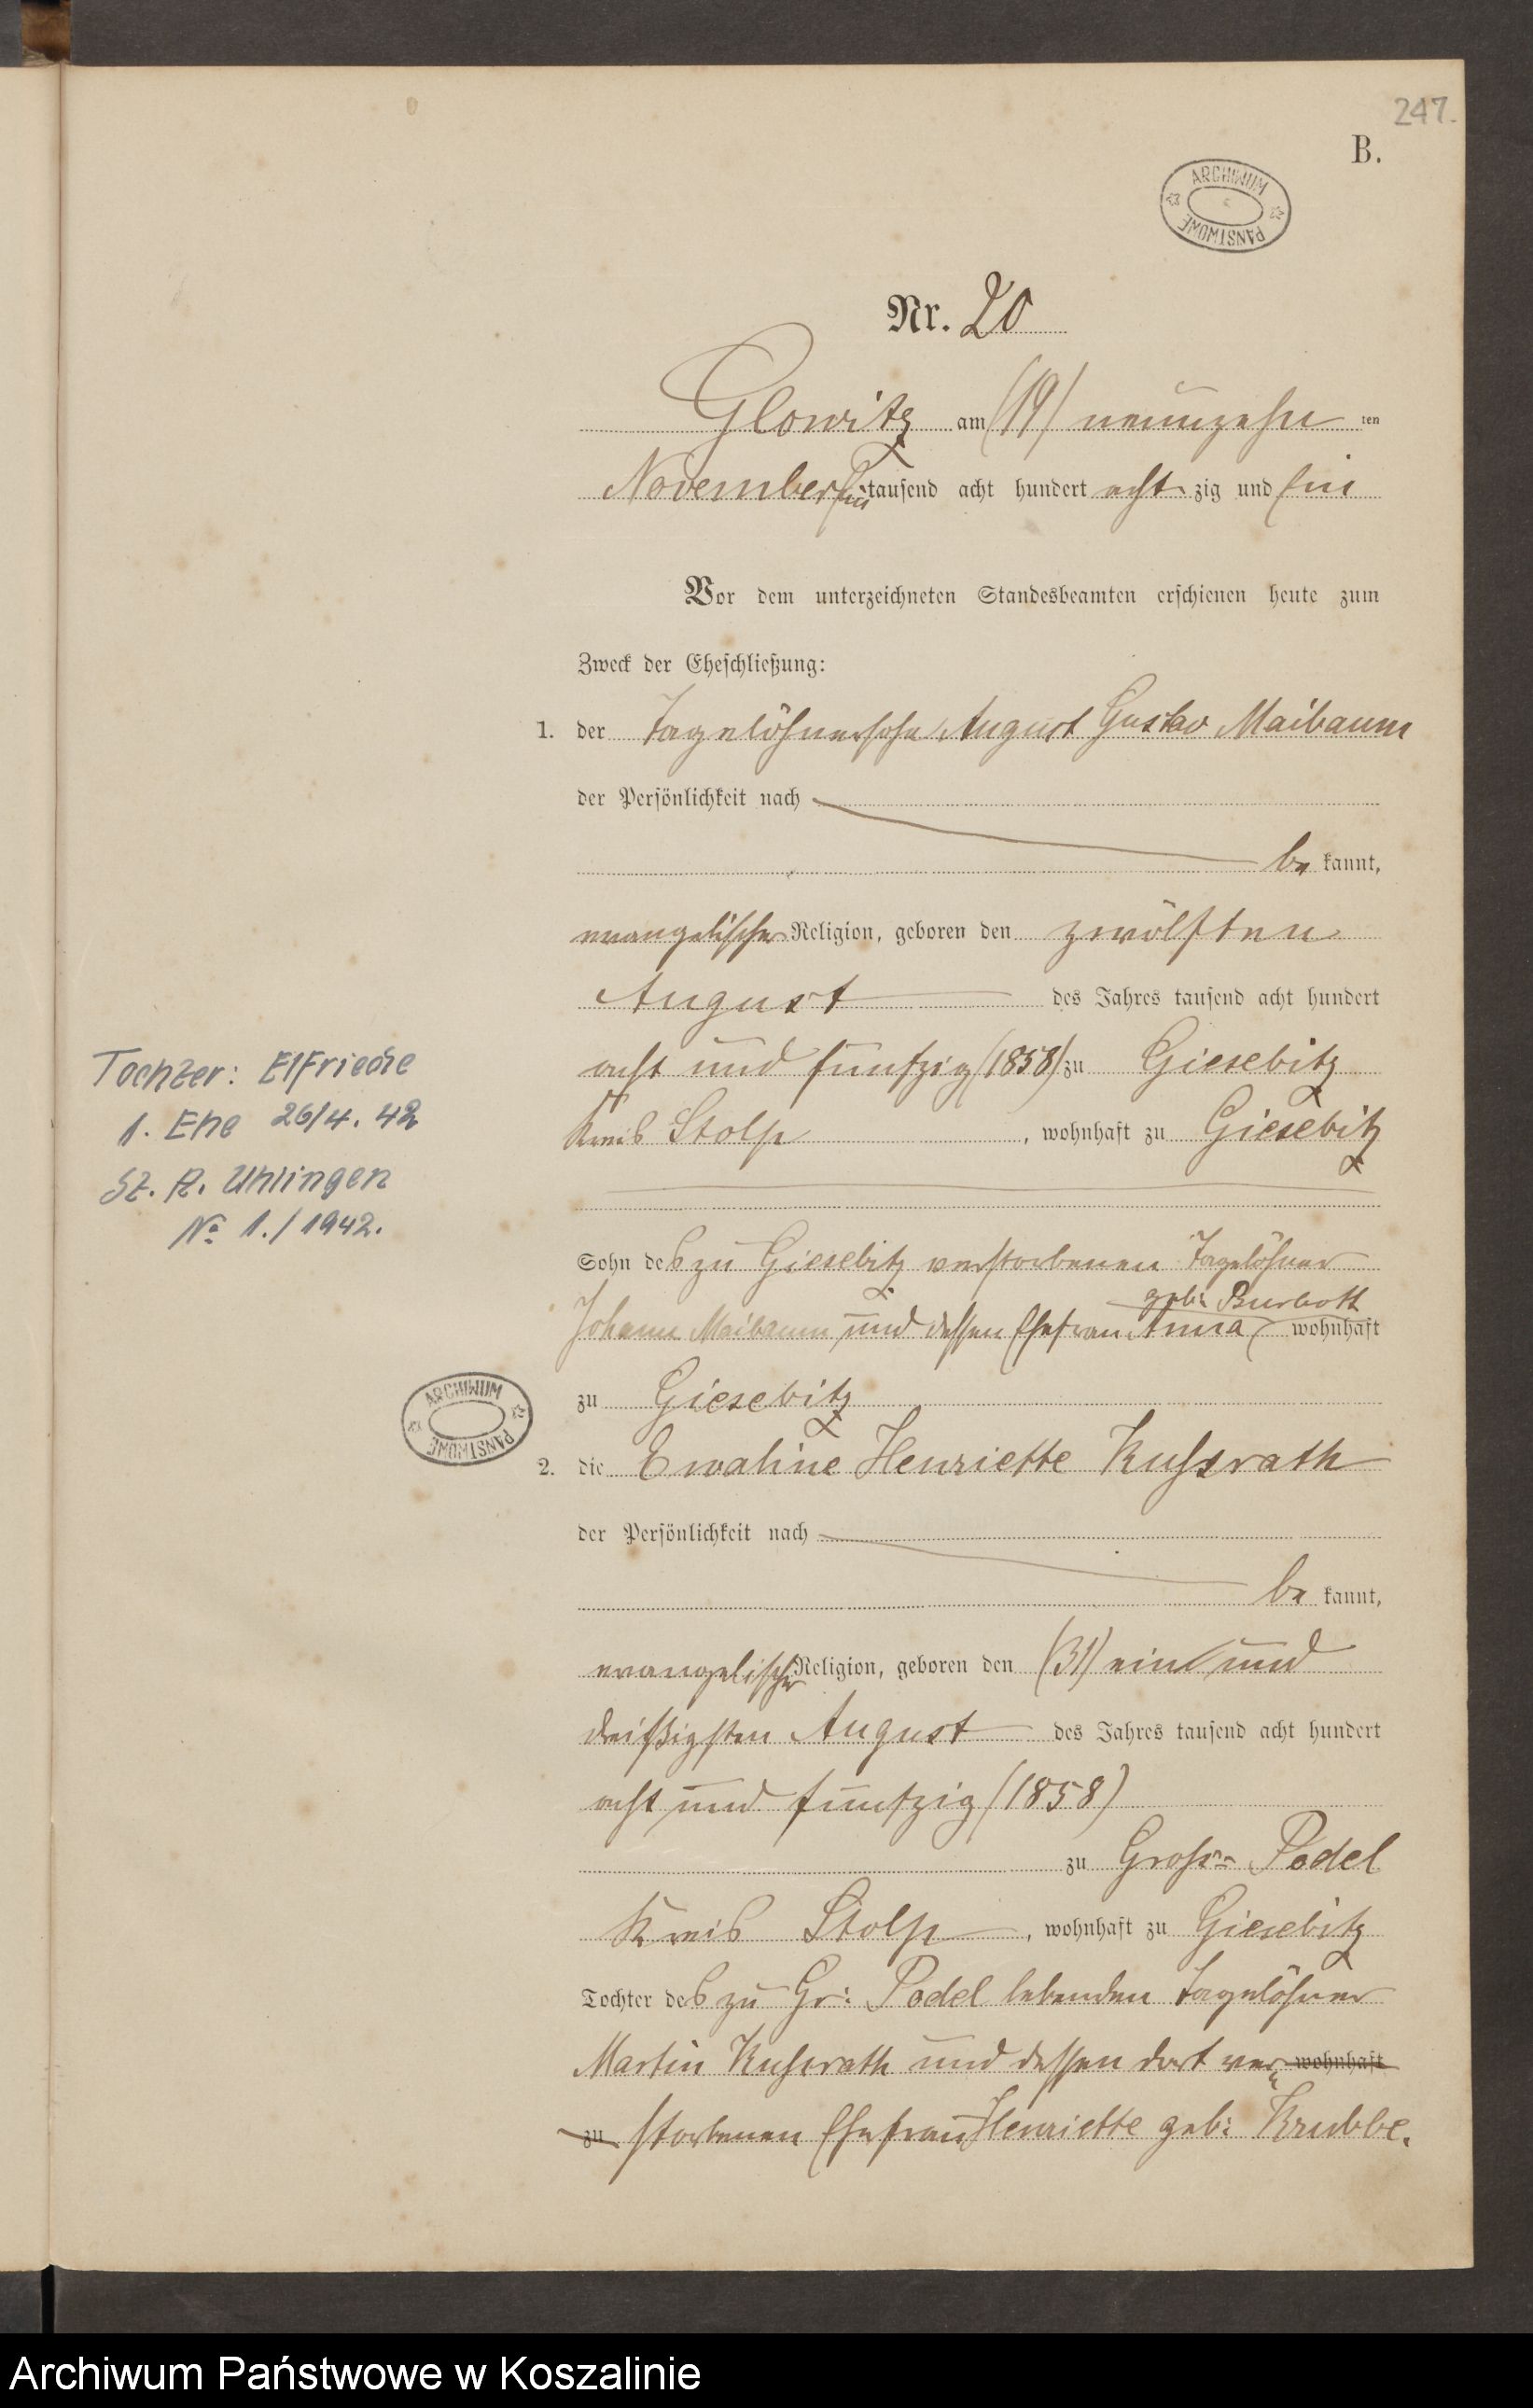 247.
B.
ARCHIWUM PAŃSTWOWE
Nr. 20
Glowitz am (19) neunzehn ten
November ein tausend acht hundert acht zig und ein
Vor dem unterzeichneten Standesbeamten erschienen heute zum
Zweck der Eheschließung:
1. der Tagelöhnersohn August Gustav Maibaum
der Persönlichkeit nach
be kannt,
evangelischer Religion, geboren den zwölften
August des Jahres tausend acht hundert
acht und fünfzig (1858) zu Giesebitz
Kreis Stolp, wohnhaft zu Giesebitz
Tochter: Elfriede
1. Ehe 26/4. 42
St. A. Uhlingen
No 1./1942.
Sohn des zu Giesebitz verstorbenen Tagelöhner
geb: Burbott
Johann Maibaum und dessen Ehefrau Anna wohnhaft
zu Giesebitz
ARCHIWUM PAŃSTWOWE
2. die Ewaline Henriette Kussrath
der Persönlichkeit nach
be kannt,
evangelischer Religion, geboren den (31) ein und
dreißigsten August des Jahres tausend acht hundert
acht und fünfzig (1858)
zu Gross= Podel
Kreis Stolp, wohnhaft zu Giesebitz
Tochter des zu Gr: Podel lebenden Tagelöhner
Martin Kussrath und dessen dort ver= wohnhaft
zu storbenen Ehefrau Henriette geb: Krubbe.
Archiwum Państwowe w Koszalinie